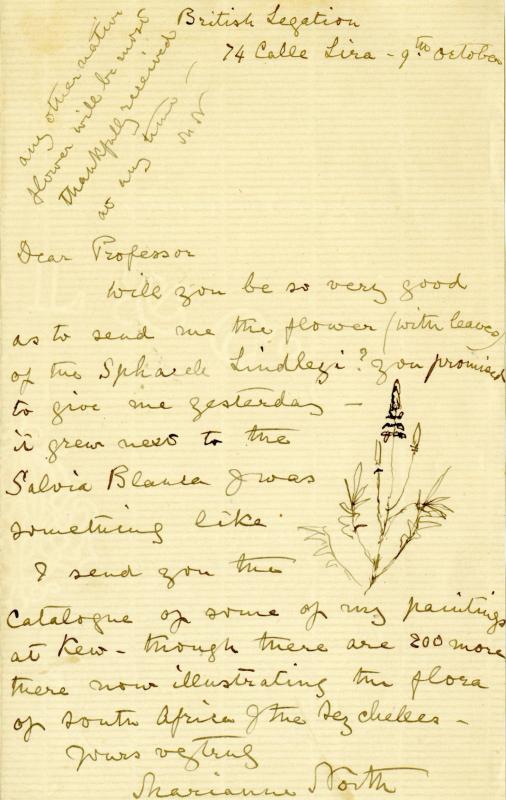 British Legation
74 Calle Lira - 9th October
any other native
flower will be most
thankfully received
at any time -
MN
Dear Professor
Will you be so very good
as to send me the flower (with leaves)
of the Sphacele Lindleyi? you promised
to give me yesterday -
it grew next to the
Salvia Blanca & was
something like
I send you the
Catalogue of some of my paintings
at Kew - though there are 200 more
there now illustrating the flora
of South Africa & the Seychelles -
yours vy truly
Marianne North